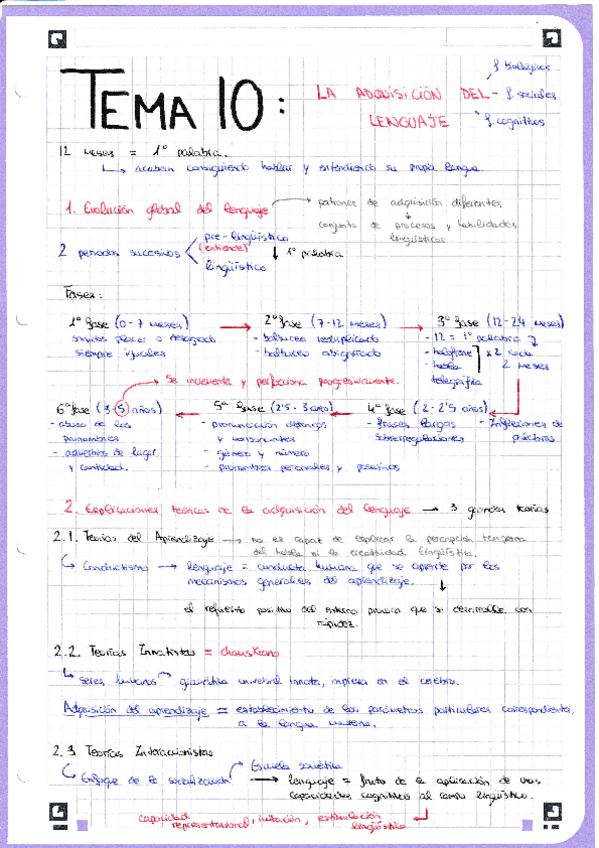 TEMA 10: LA ADQUISICIÓN DEL LENGUAJE
f. biológicos
f. sociales
f. cognitivos
12 meses = 1ª palabra.
acaban consiguiendo hablar y entendiendo su propia lengua
1. Evolución global del lenguaje
patrones de adquisición diferentes
conjunto de procesos y habilidades lingüísticas
2 periodos sucesivos
pre-lingüístico
(entiende)
1ª palabra
lingüístico
Fases:
1ª fase (0-7 meses)
sonidos placer o desagrado
siempre vocales
2ª fase (7-12 meses)
- balbuceo reduplicado
- balbuceo abigarrado
3ª fase (12-24 meses)
- 12 = 1ª palabra
- holofrase
- habla telegráfica
x2 cada 2 meses
Se incrementa y perfecciona progresivamente.
6ª fase (3-5 años)
- abuso de los pronombres
- adverbios de lugar y cantidad.
5ª fase (2'5-3 años)
- pronunciación diptongos y consonantes
- género y número
- pronombres personales y posesivos
4ª fase (2-2'5 años)
- frases largas
- sobrerregulaciones
- Inflexiones de palabras
2. Explicaciones teóricas de la adquisición del lenguaje → 3 grandes teorías
2.1. Teorías del Aprendizaje → no es capaz de explicar la percepción temprana
del habla ni la creatividad lingüística.
Conductismo → lenguaje = conducta humana que se aprende por los
mecanismos generales del aprendizaje.
el refuerzo positivo del entorno provoca que se desarrolle con
rapidez.
2.2. Teorías Innatistas = chomskiano
seres humanos gramática universal innata, impresa en el cerebro.
Adquisición del aprendizaje = establecimiento de los parámetros particulares correspondientes
a la lengua materna.
2.3. Teorías Interaccionistas
Escuela soviética
Enfoque de la socialización → lenguaje = fruto de la aplicación de unas
capacidades cognitivas al campo lingüístico.
capacidad representacional, imitación, estimulación lingüística